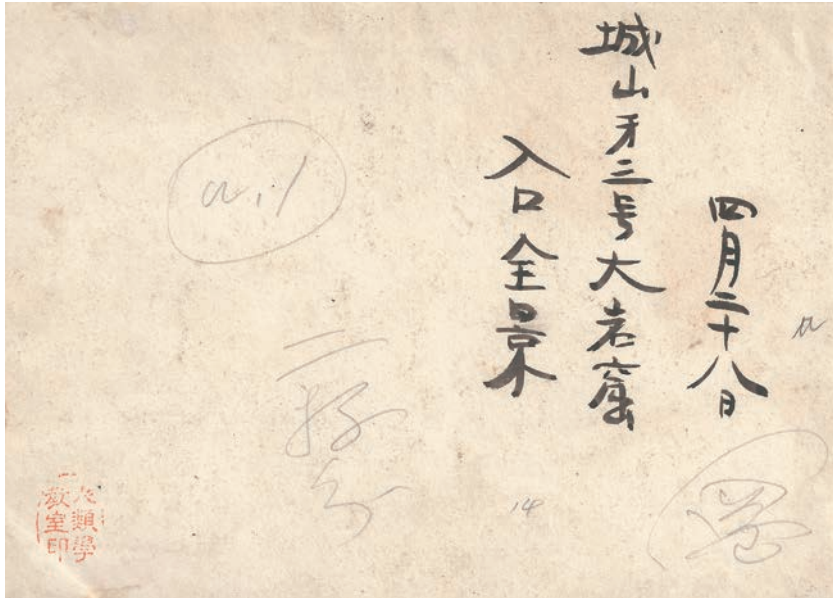 四月二十八日
城山㐧三号大岩窟
入口全景
a.1
a
14
人類學
教室印